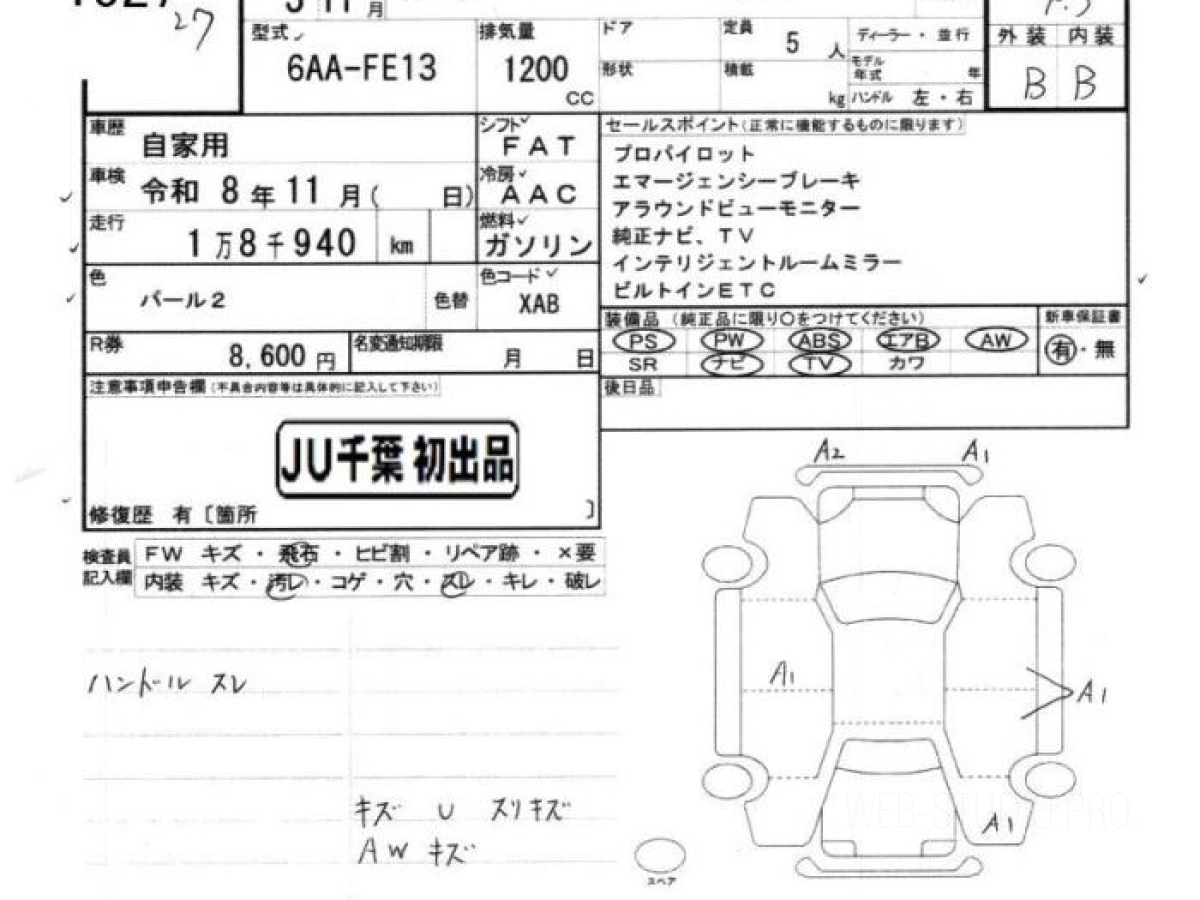 27
月
型式 6AA-FE13
排気量 1200 CC
ドア
形状
定員 5 人
積載 kg
ディーラー・並行
モデル年式 年
ハンドル 左・右
外装 内装
B B
車歴 自家用
シフト FAT
車検 令和 8年 11月( 日)
冷房 AAC
走行 1万8千940 km
燃料 ガソリン
色 パール2
色替
色コード XAB
R券 8,600円
名変通知期限 月 日
セールスポイント(正常に機能するものに限ります)
プロパイロット
エマージェンシーブレーキ
アラウンドビューモニター
純正ナビ、TV
インテリジェントルームミラー
ビルトインETC
装備品 (純正品に限り○をつけてください)
PS PW ABS エアB AW
SR ナビ TV カワ
新車保証書
有・無
後日品
注意事項申告欄(不具合内容等は具体的に記入して下さい)
JU千葉 初出品
修復歴 有〔箇所 〕
検査員記入欄
FW キズ・飛石・ヒビ割・リペア跡・×要
内装 キズ・汚レ・コゲ・穴・スレ・キレ・破レ
ハンドル スレ
キズ U スリキズ
AW キズ
A2 A1
A1
A1
A1
スペア
WEB-STUDIO.PRO